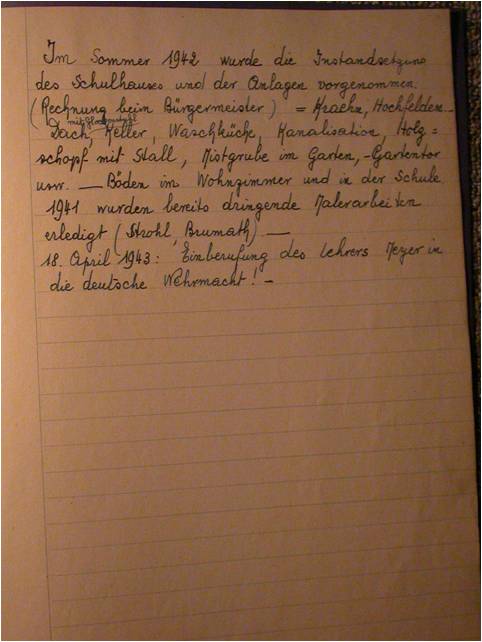 Im Sommer 1942 wurde die Instandsetzung
des Schulhauses und der Anlagen vorgenommen.
(Rechnung beim Bürgermeister) = Kraehn, Hochfelden_
Dach, Keller, Waschküche, Kanalisation, Holz=
schopf mit Stall, Mistgrube im Garten, -Gartentor
usw. — Böden im Wohnzimmer und in der Schule
1941 wurden bereits dringende Malerarbeiten
erledigt (Strohl, Brumath) —
18. April 1943: Einberufung des Lehrers Meyer in
die deutsche Wehrmacht! –